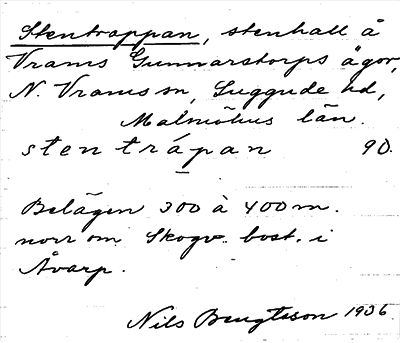 Stentrappan, stenhall å
Vrams Gunnarstorps ägor,
N. Vrams sn, Luggude hd,
Malmöhus län.
stentrápan 90.
Belägen 300 à 400 m.
norr om Skogv. bost. i
Åvarp.
Nils Bengtsson 1936.